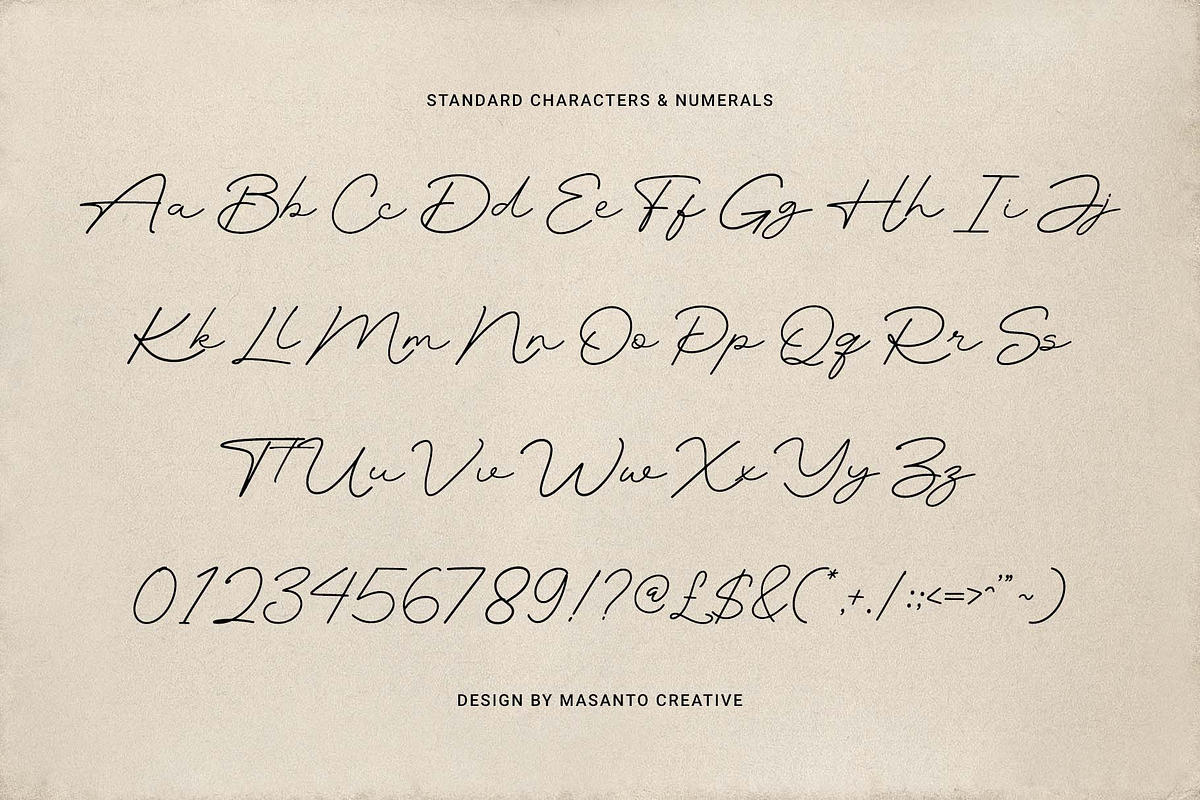 STANDARD CHARACTERS & NUMERALS
Aa Bb Cc Dd Ee Ff Gg Hh Ii Jj
Kk Ll Mm Nn Oo Pp Qq Rr Ss
Tt Uu Vv Ww Xx Yy Zz
0123456789!?@£$&(*,+./:;<=>^'"~)
DESIGN BY MASANTO CREATIVE